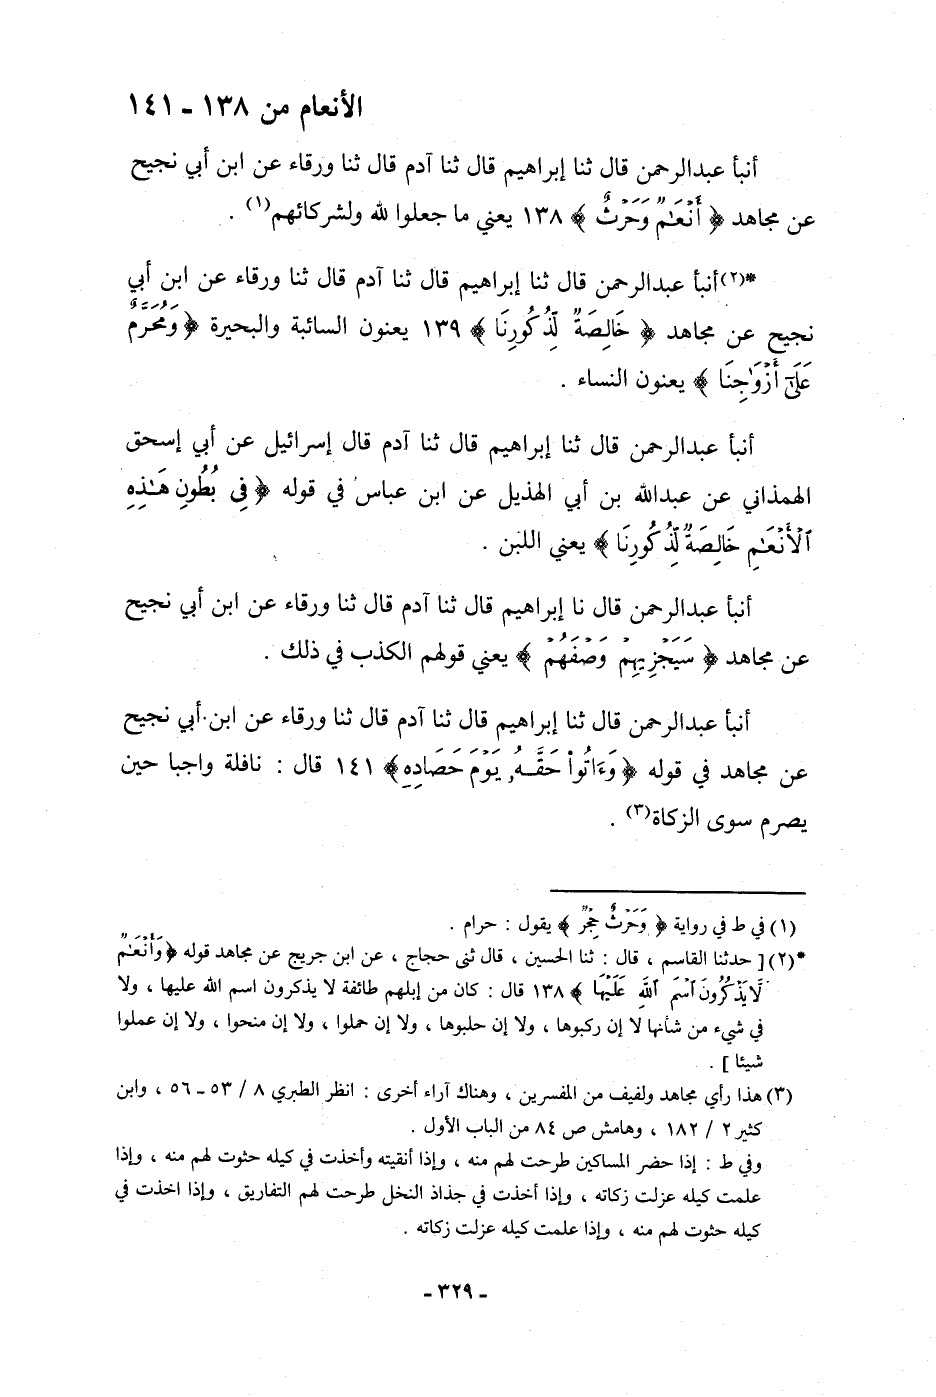 الأنعام من ١٣٨ - ١٤١
أنبأ عبدالرحمن قال ثنا إبراهيم قال ثنا آدم قال ثنا ورقاء عن ابن أبي نجيح
عن مجاهد ﴿ أَنْعَٰمٌ وَحَرْثٌ ﴾ ١٣٨ يعني ما جعلوا لله ولشركائهم(١) .
*(٢)أنبأ عبدالرحمن قال ثنا إبراهيم قال ثنا آدم قال ثنا ورقاء عن ابن أبي
نجيح عن مجاهد ﴿ خَالِصَةٌ لِّذُكُورِنَا ﴾ ١٣٩ يعنون السائبة والبحيرة ﴿ وَمُحَرَّمٌ
عَلَىٰٓ أَزْوَٰجِنَا ﴾ يعنون النساء .
أنبأ عبدالرحمن قال ثنا إبراهيم قال ثنا آدم قال إسرائيل عن أبي إسحق
الهمذاني عن عبدالله بن أبي الهذيل عن ابن عباس في قوله ﴿ فِى بُطُونِ هَٰذِهِ
ٱلْأَنْعَٰمِ خَالِصَةٌ لِّذُكُورِنَا ﴾ يعني اللبن .
أنبأ عبدالرحمن قال نا إبراهيم قال ثنا آدم قال ثنا ورقاء عن ابن أبي نجيح
عن مجاهد ﴿ سَيَجْزِيهِمْ وَصْفَهُمْ ﴾ يعني قولهم الكذب في ذلك .
أنبأ عبدالرحمن قال ثنا إبراهيم قال ثنا آدم قال ثنا ورقاء عن ابن أبي نجيح
عن مجاهد في قوله ﴿ وَءَاتُوا۟ حَقَّهُۥ يَوْمَ حَصَادِهِ ﴾ ١٤١ قال : نافلة واجبا حين
يصرم سوى الزكاة(٣) .
(١) في ط في رواية ﴿ وَحَرْثٌ حِجْرٌ ﴾ يقول : حرام .
*(٢)[ حدثنا القاسم ، قال : ثنا الحسين ، قال ثنى حجاج ، عن ابن جريج عن مجاهد قوله ﴿ وَأَنْعَٰمٌ
لَّا يَذْكُرُونَ ٱسْمَ ٱللَّهِ عَلَيْهَا ﴾ ١٣٨ قال : كان من إبلهم طائفة لا يذكرون اسم الله عليها ، ولا
في شيء من شأنها لا إن ركبوها ، ولا إن حلبوها ، ولا إن حملوا ، ولا إن منحوا ، ولا إن عملوا
شيئا ] .
(٣) هذا رأي مجاهد ولفيف من المفسرين ، وهناك آراء أخرى : انظر الطبري ٨ / ٥٣ - ٥٦ ، وابن
كثير ٢ / ١٨٢ ، وهامش ص ٨٤ من الباب الأول .
وفي ط : إذا حضر المساكين طرحت لهم منه ، وإذا أنقيته وأخذت في كيله حثوت لهم منه ، وإذا
علمت كيله عزلت زكاته ، وإذا أخذت في جذاذ النخل طرحت لهم التفاريق ، وإذا اخذت في
كيله حثوت لهم منه ، وإذا علمت كيله عزلت زكاته .
- ٣٢٩ -